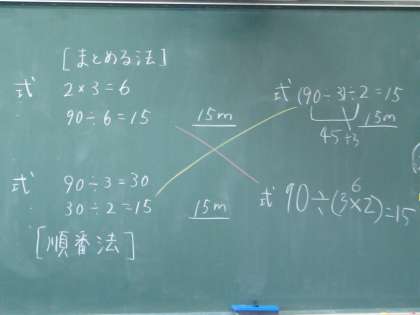 [まとめる法]
式 2×3=6
90÷6=15 15m
式 90÷3=30
30÷2=15 15m
[順番法]
式 (90-3)÷2=15
15m
45÷3
式 90÷(3×2)=15
6